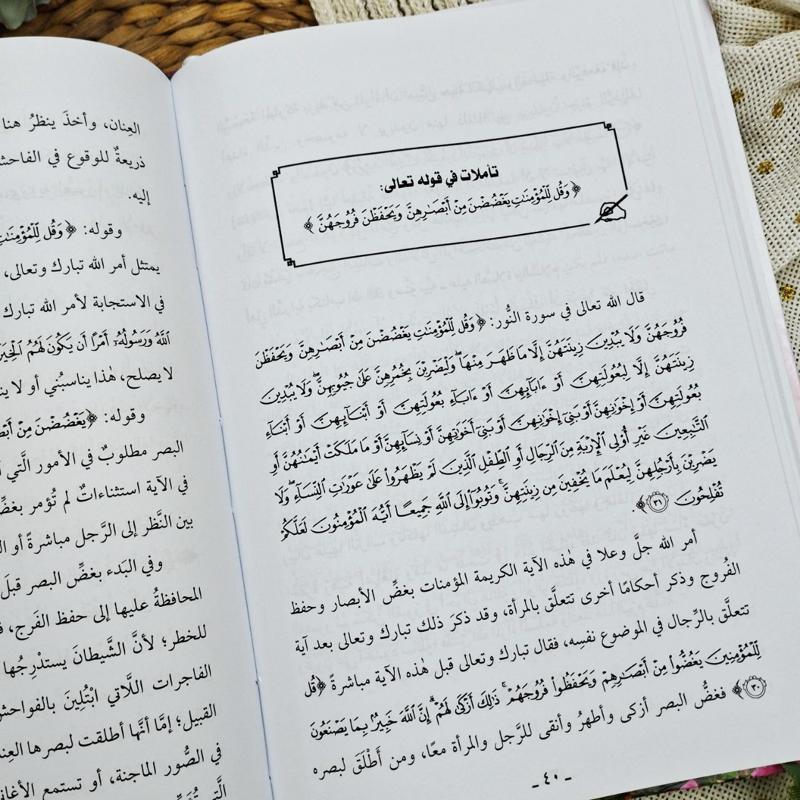 تأملات في قوله تعالى:
﴿وَقُل لِّلْمُؤْمِنَٰتِ يَغْضُضْنَ مِنْ أَبْصَٰرِهِنَّ وَيَحْفَظْنَ فُرُوجَهُنَّ﴾
قال الله تعالى في سورة النُّور: ﴿وَقُل لِّلْمُؤْمِنَٰتِ يَغْضُضْنَ مِنْ أَبْصَٰرِهِنَّ وَيَحْفَظْنَ
فُرُوجَهُنَّ وَلَا يُبْدِينَ زِينَتَهُنَّ إِلَّا مَا ظَهَرَ مِنْهَا ۖ وَلْيَضْرِبْنَ بِخُمُرِهِنَّ عَلَىٰ جُيُوبِهِنَّ ۖ وَلَا يُبْدِينَ
زِينَتَهُنَّ إِلَّا لِبُعُولَتِهِنَّ أَوْ ءَابَآئِهِنَّ أَوْ ءَابَآءِ بُعُولَتِهِنَّ أَوْ أَبْنَآئِهِنَّ أَوْ أَبْنَآءِ
بُعُولَتِهِنَّ أَوْ إِخْوَٰنِهِنَّ أَوْ بَنِىٓ إِخْوَٰنِهِنَّ أَوْ بَنِىٓ أَخَوَٰتِهِنَّ أَوْ نِسَآئِهِنَّ أَوْ مَا مَلَكَتْ أَيْمَٰنُهُنَّ أَوِ
التَّٰبِعِينَ غَيْرِ أُو۟لِى الْإِرْبَةِ مِنَ الرِّجَالِ أَوِ الطِّفْلِ الَّذِينَ لَمْ يَظْهَرُوا۟ عَلَىٰ عَوْرَٰتِ النِّسَآءِ ۖ وَلَا
يَضْرِبْنَ بِأَرْجُلِهِنَّ لِيُعْلَمَ مَا يُخْفِينَ مِن زِينَتِهِنَّ ۚ وَتُوبُوٓا۟ إِلَى اللَّهِ جَمِيعًا أَيُّهَ الْمُؤْمِنُونَ لَعَلَّكُمْ
تُفْلِحُونَ ٣١﴾
أمر الله جلَّ وعلا في هٰذه الآية الكريمة المؤمنات بغضِّ الأبصار وحفظ
الفُروج وذكر أحكامًا أخرى تتعلَّق بالمرأة، وقد ذكرَ ذلك تبارك وتعالى بعد آية
تتعلَّق بالرِّجال في الموضوع نفسِه، فقال تبارك وتعالى قبل هٰذه الآية مباشرةً ﴿قُل
لِّلْمُؤْمِنِينَ يَغُضُّوا۟ مِنْ أَبْصَٰرِهِمْ وَيَحْفَظُوا۟ فُرُوجَهُمْ ۚ ذَٰلِكَ أَزْكَىٰ لَهُمْ ۗ إِنَّ اللَّهَ خَبِيرٌۢ بِمَا يَصْنَعُونَ
٣٠﴾ فغضُّ البصر أزكى وأطهرُ وأنقى للرَّجل والمرأة معًا، ومن أَطْلَقَ لبصره
- ٤٠ -
العِنان، وأخذَ ينظرُ هنا
ذريعةٌ للوقوع في
إليه.
وقوله: ﴿وَقُل
يمتثل أمر الله تبارك وتعالى،
في الاستجابة لأمر الله تبارك
اللَّهُ وَرَسُولُهُۥٓ أَمْرًا أَن يَكُونَ لَهُمُ
لا يصلح، هٰذا يناسبُني أو لا
وقوله: ﴿يَغْضُضْنَ مِنْ
البصر مطلوبٌ في الأمور الَّتي
في الآية استثناءاتٌ لم تُؤمر
بين النَّظر إلى الرَّجل مباشرةً أو
وفي البَدء بغضِّ البصر قبلَ
المحافظةُ عليها إلى حفظ الفَرج،
للخطر؛ لأنَّ الشَّيطانَ يستدْرِجُها
الفاجرات اللَّاتي ابْتُلِينَ
القبيل؛ إمَّا أنَّها أطلقت لبصرها
في الصُّور الماجنة، أو تستمع